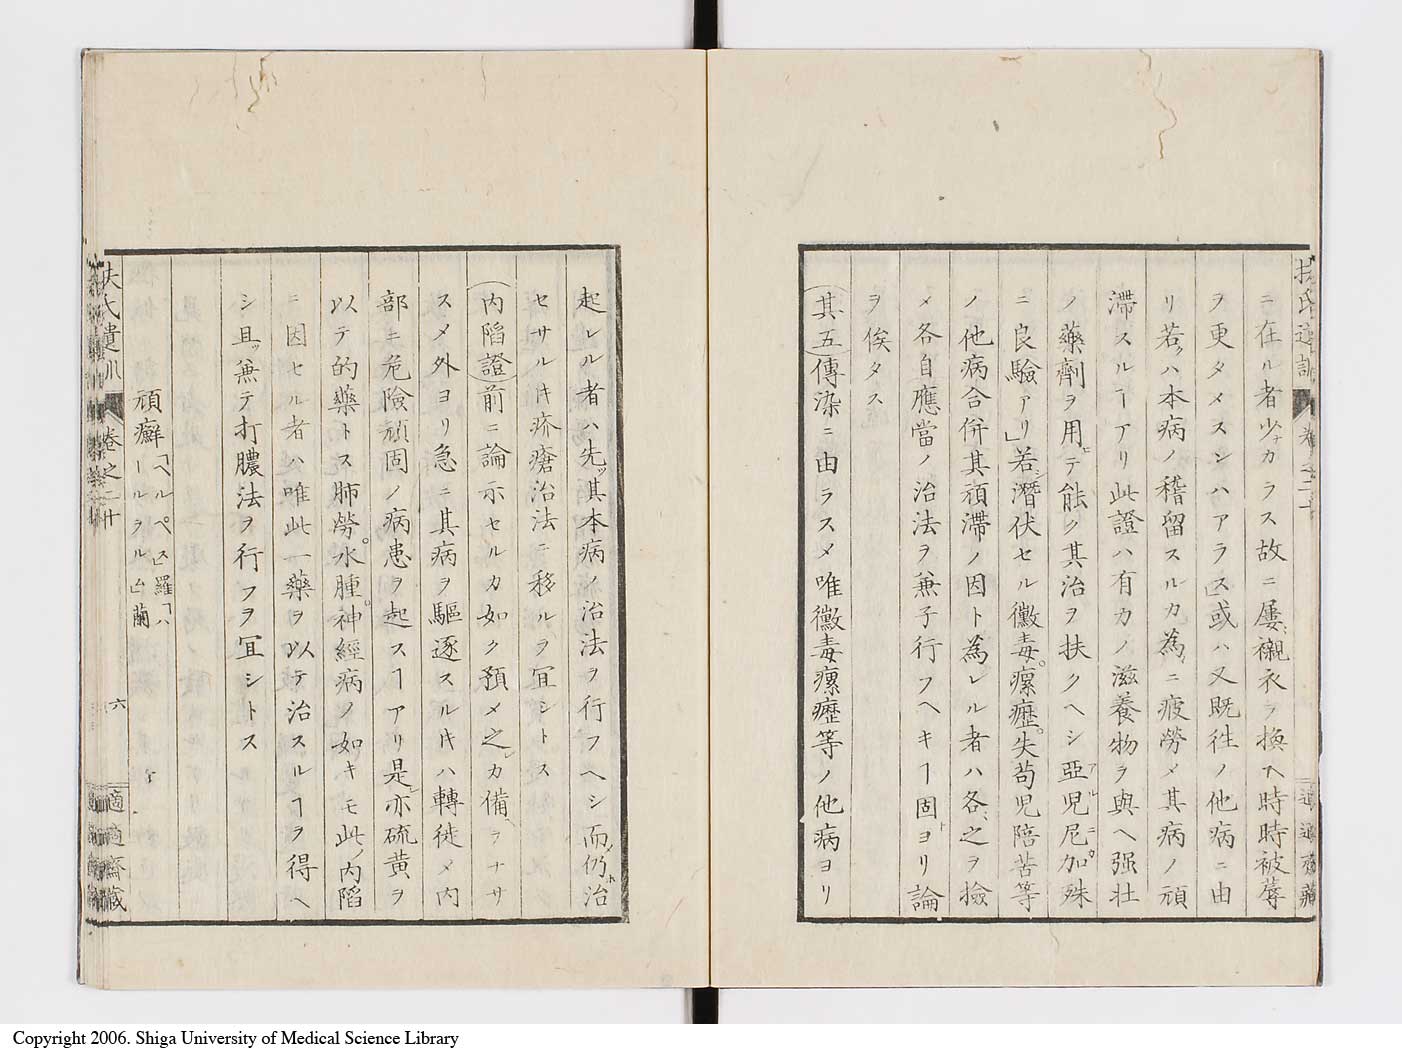 ニ在ル者少ナカラス故ニ屡〻襯衣ヲ換ヘ時時被蓐
ヲ更タメスンハアラス」或ハ又既往ノ他病ニ由
リ若クハ本病ノ稽留スルカ為メニ疲勞メ其病ノ頑
滞スルヿアリ此證ハ有力ノ滋養物ヲ與ヘ强壮
ノ藥劑ヲ用ヒテ能ク其治ヲ扶クヘシ亞兒尼加殊
ニ良驗アリ」若シ潜伏セル黴毒。瘰癧。失苟兒陪苦等
ノ他病合併其頑滞ノ因ト為レル者ハ各〻之ヲ撿
メ各自應當ノ治法ヲ兼子行フヘキヿ固トヨリ論
ヲ俟タス
其五傳染ニ由ラスメ唯黴毒瘰癧等ノ他病ヨリ
起レル者ハ先ツ其本病ノ治法ヲ行フヘシ而ノ仍ホ治
セサルキ疥瘡治法ニ移ルヲ宜シトス
內陷證前ニ論示セルカ如ク預メ之レカ備ヘヲナサ
スメ外ヨリ急ニ其病ヲ驅逐スルキハ轉徙メ內
部ニ危險頑固ノ病患ヲ起スヿアリ是レ亦硫黄ヲ
以テ的藥トス肺勞。水腫。神經病ノ如キモ此ノ內陷
ニ因セル者ハ唯此一藥ヲ以テ治スルヿヲ得ヘ
シ且ツ兼テ打膿法ヲ行フヲ宜シトス
頑癬 「ヘルペス」羅「ハールラルム」蘭
扶氏遺訓 卷之二十 六 適適齋藏